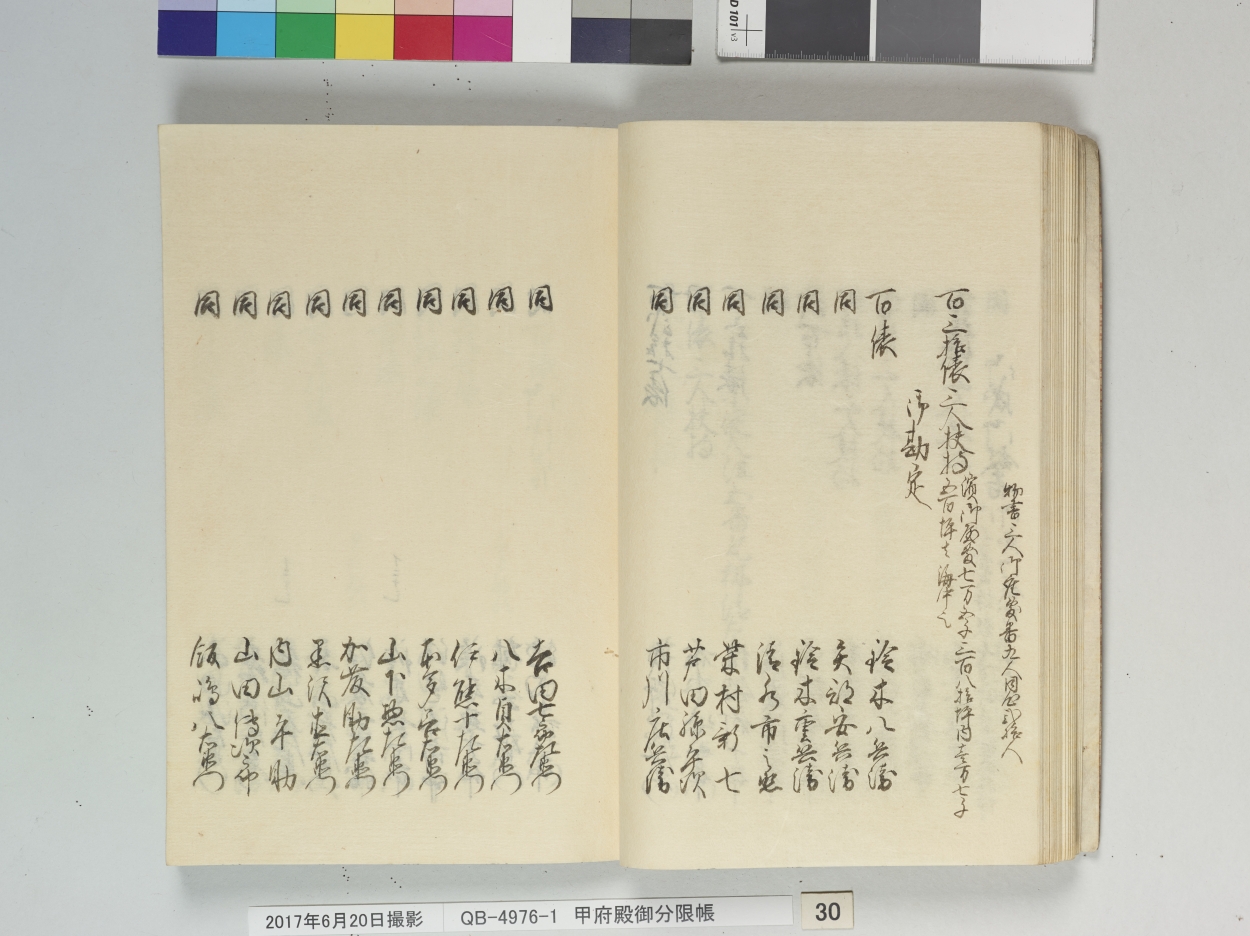 物書三人御在番九人同心弐拾人
百三拾俵三人扶持
濱御屋敷七万五千三百八拾坪内壱万七千
五百坪ハ海岸之
御勘定
百俵 鈴木八兵衛
同 矢部安兵衛
同 鈴木雲兵衛
同 清水市之丞
同 葉村新七
同 芦田孫平次
同 市川庄兵衛
同 吉田七郎左衛門
同 八木貞右衛門
同 伊熊十左衛門
同 本多六右衛門
同 山下惣左衛門
同 加藤助左衛門
同 黒沢左衛門
同 内山平助
同 山田傳次郎
同 飯嶋八右衛門
2017年6月20日撮影 QB-4976-1 甲府殿御分限帳
30